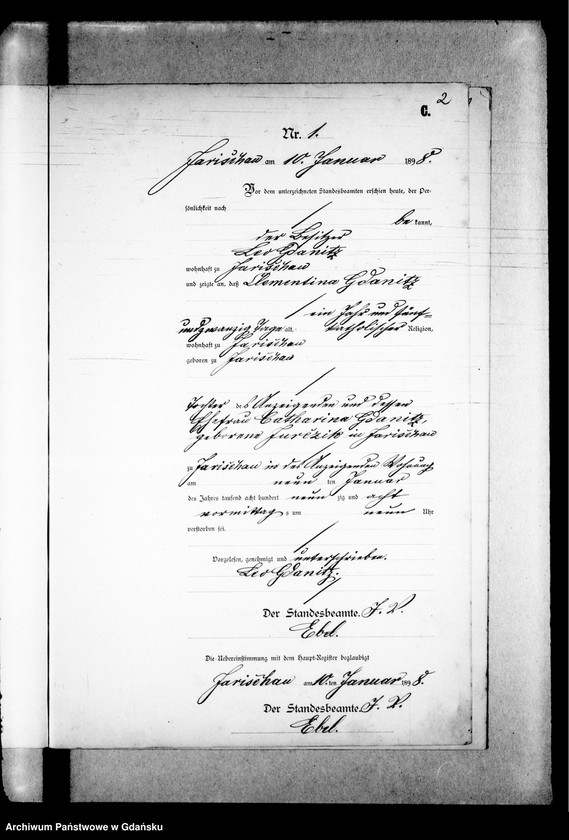 2
C.
Nr. 1.
Jarischau am 10. Januar 1898.
Vor dem unterzeichneten Standesbeamten erschien heute, der Per-
sönlichkeit nach
be kannt,
der Besitzer
Leo Gdanitz
wohnhaft zu Jarischau
und zeigte an, daß Clementina Gdanitz
ein Jahr und fünf-
undzwanzig Tage alt, katholischer Religion,
wohnhaft zu Jarischau
geboren zu Jarischau
Tochter des Anzeigenden und dessen
Ehefrau Catharina Gdanitz,
geborene Jurčzik in Jarischau
zu Jarischau in des Anzeigenden Wohnung
am neun ten Januar
des Jahres tausend acht hundert neun zig und acht
vormittag s um neun Uhr
verstorben sei.
Vorgelesen, genehmigt und unterschrieben.
Leo Gdanitz.
Der Standesbeamte. I. V.
Ebel.
Die Uebereinstimmung mit dem Haupt-Register beglaubigt
Jarischau am 10. ten Januar 1898.
Der Standesbeamte. I. V.
Ebel.
Archiwum Państwowe w Gdańsku